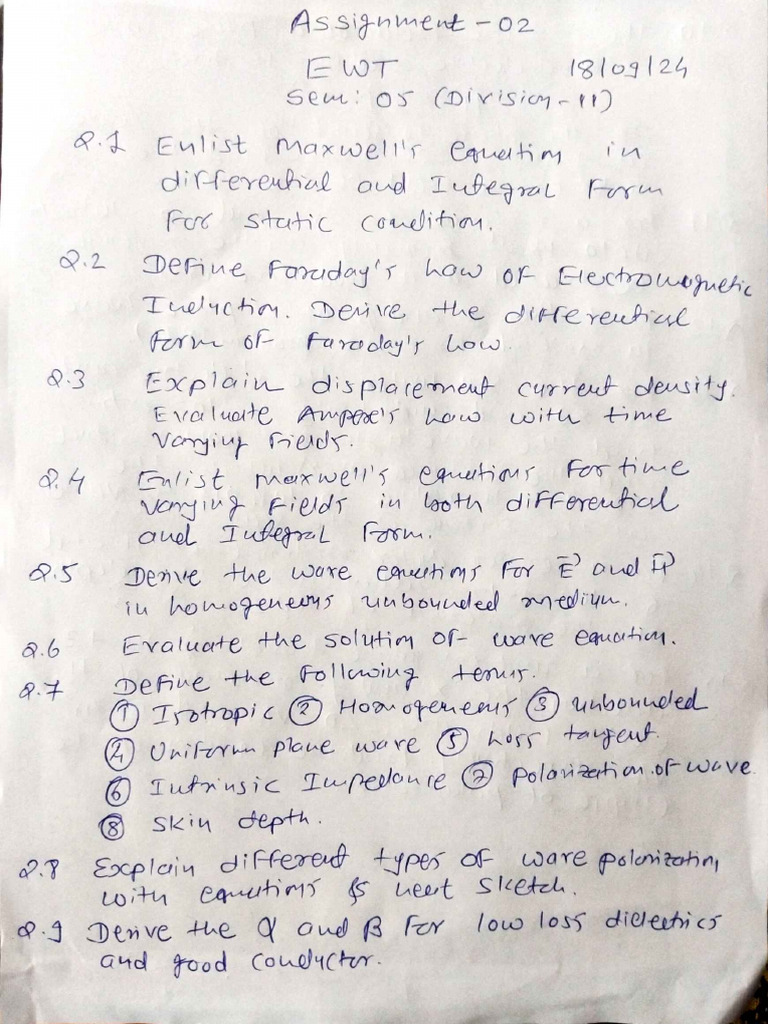 Assignment - 02
EWT 18/09/24
Sem: 05 (Division-11)
Q.1 Enlist Maxwell's equation in
differential and Integral Form
For static condition.
Q.2 Define Faraday's Law of Electromagnetic
Induction. Derive the differential
form of Faraday's Law.
Q.3 Explain displacement current density.
Evaluate Ampere's Law with time
varying Fields.
Q.4 Enlist Maxwell's equations For time
varying Fields in both differential
and Integral Form.
Q.5 Derive the wave equations For E⃗ and H⃗
in homogeneous unbounded medium.
Q.6 Evaluate the solution of wave equation.
Q.7 Define the Following terms.
① Isotropic ② Homogeneous ③ unbounded
④ Uniform plane wave ⑤ Loss tangent.
⑥ Intrinsic Impedance ⑦ polarization of wave
⑧ Skin depth.
Q.8 Explain different types of wave polarization
with equations & neat sketch.
Q.9 Derive the α and β For low loss dielectrics
and good conductor.